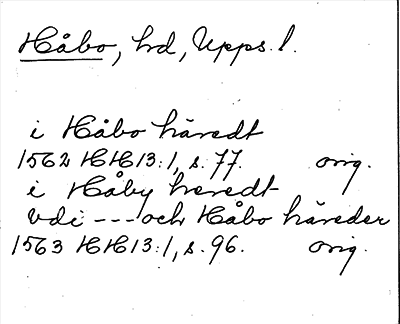 Håbo, hd, Upps. l.
i Håbo häredt
1562 HH 13:1, s. 77. orig.
i Håby heredt
vdi ---- och Håbo häreder
1563 HH 13:1, s. 96. orig.